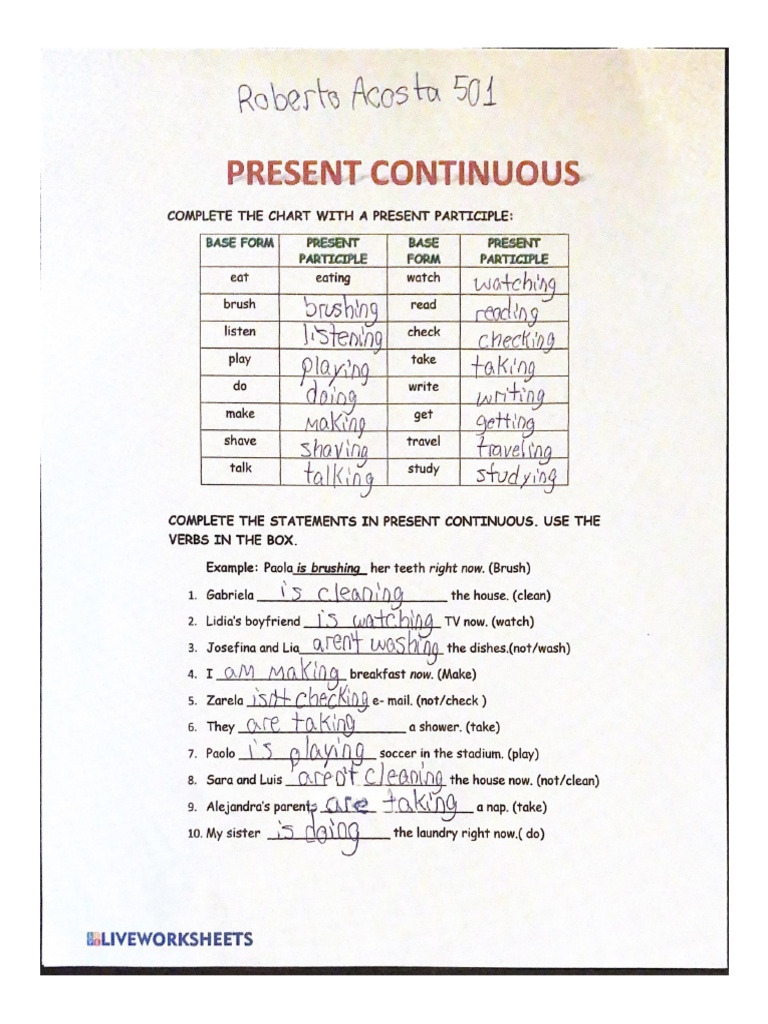 Roberto Acosta 501
PRESENT CONTINUOUS
COMPLETE THE CHART WITH A PRESENT PARTICIPLE:
BASE FORM PRESENT PARTICIPLE BASE FORM PRESENT PARTICIPLE
eat eating watch watching
brush brushing read reading
listen listening check checking
play playing take taking
do doing write writing
make making get getting
shave shaving travel traveling
talk talking study studying
COMPLETE THE STATEMENTS IN PRESENT CONTINUOUS. USE THE
VERBS IN THE BOX.
Example: Paola is brushing her teeth right now. (Brush)
1. Gabriela is cleaning the house. (clean)
2. Lidia's boyfriend is watching TV now. (watch)
3. Josefina and Lia aren't washing the dishes.(not/wash)
4. I am making breakfast now. (Make)
5. Zarela isn't checking e- mail. (not/check )
6. They are taking a shower. (take)
7. Paolo is playing soccer in the stadium. (play)
8. Sara and Luis aren't cleaning the house now. (not/clean)
9. Alejandra's parents are taking a nap. (take)
10. My sister is doing the laundry right now.( do)
LIVEWORKSHEETS